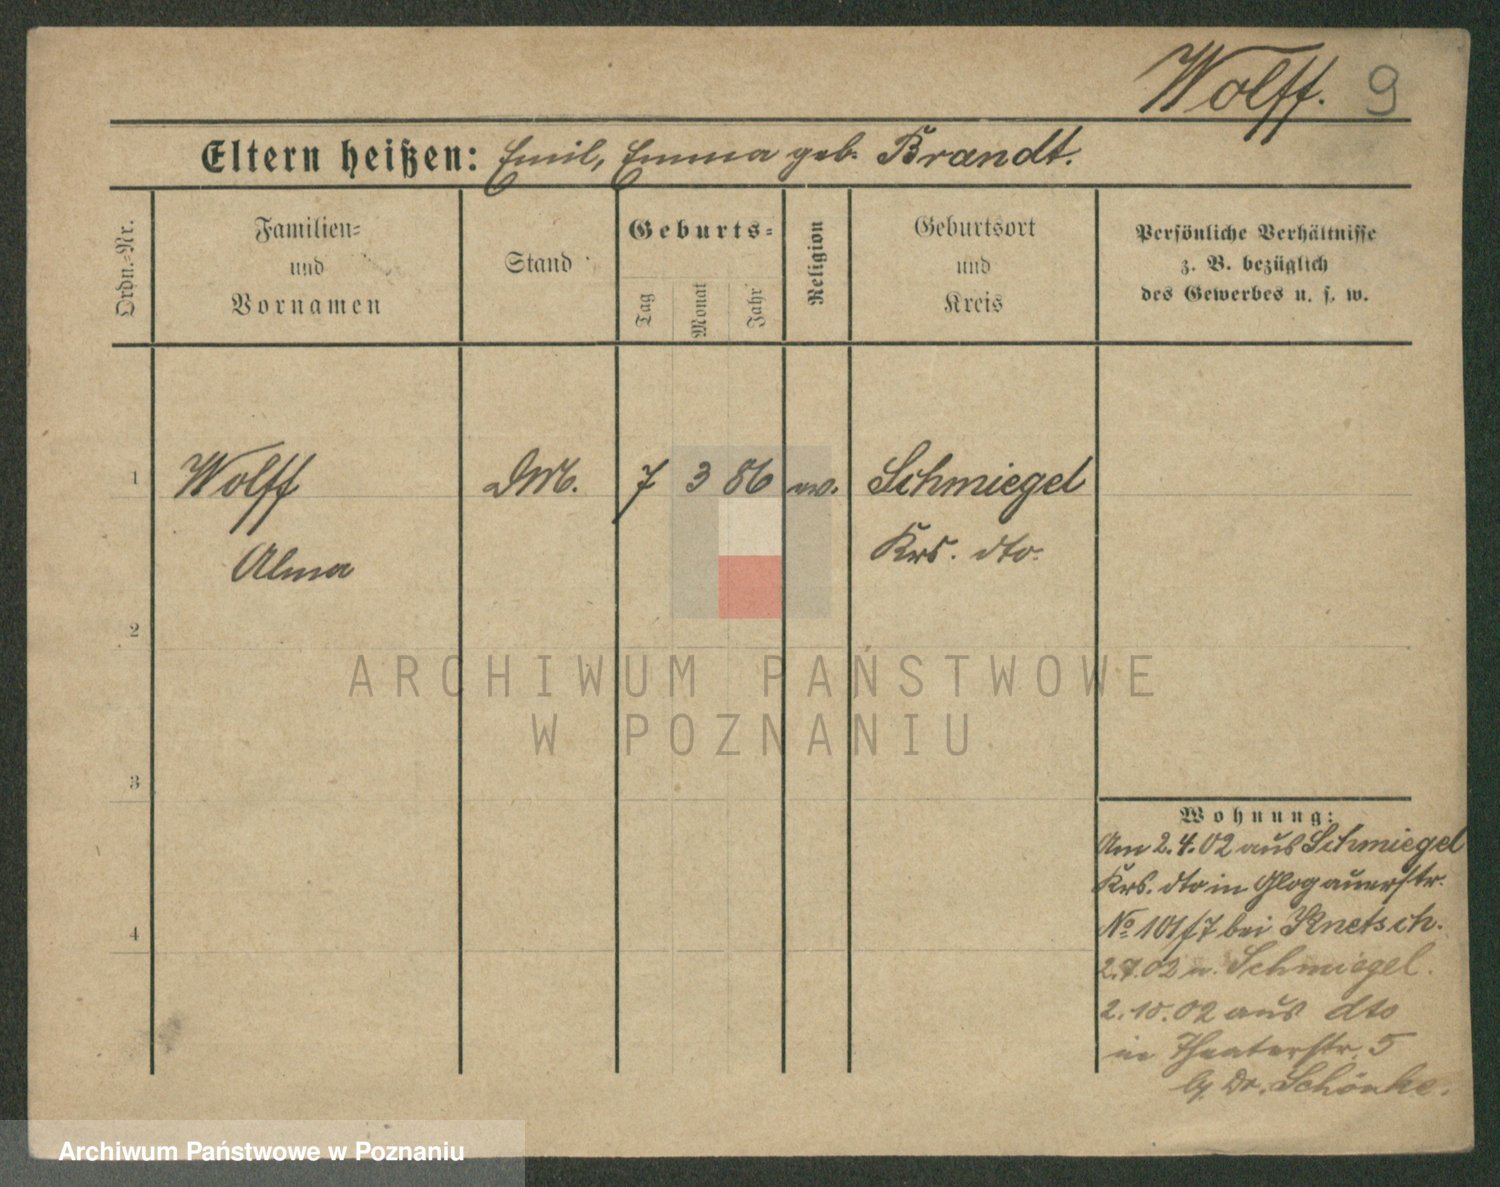 Wolff. 9
Eltern heißen: Emil, Emma geb. Brandt.
Ordn.-Nr.
Familien-
und
Vornamen
Stand
Geburts-
Tag
Monat
Jahr
Religion
Geburtsort
und
Kreis
Persönliche Verhältnisse
z. B. bezüglich
des Gewerbes u. s. w.
1 Wolff 7 3 86 ev. Schmiegel
Alma Krs. dto.
2
3
4
ARCHIWUM PAŃSTWOWE
W POZNANIU
Wohnung:
Am 2.4.02 aus Schmiegel
Krs. dto in Glogauerstr.
No 101/7 bei Knetsch.
2.7.02 n. Schmiegel.
2.10.02 aus dto
in Theaterstr. 5
Dr. Schönke.
Archiwum Państwowe w Poznaniu